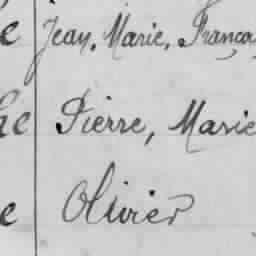 e Jean, Marie, França
he Pierre, Marie
e Olivier